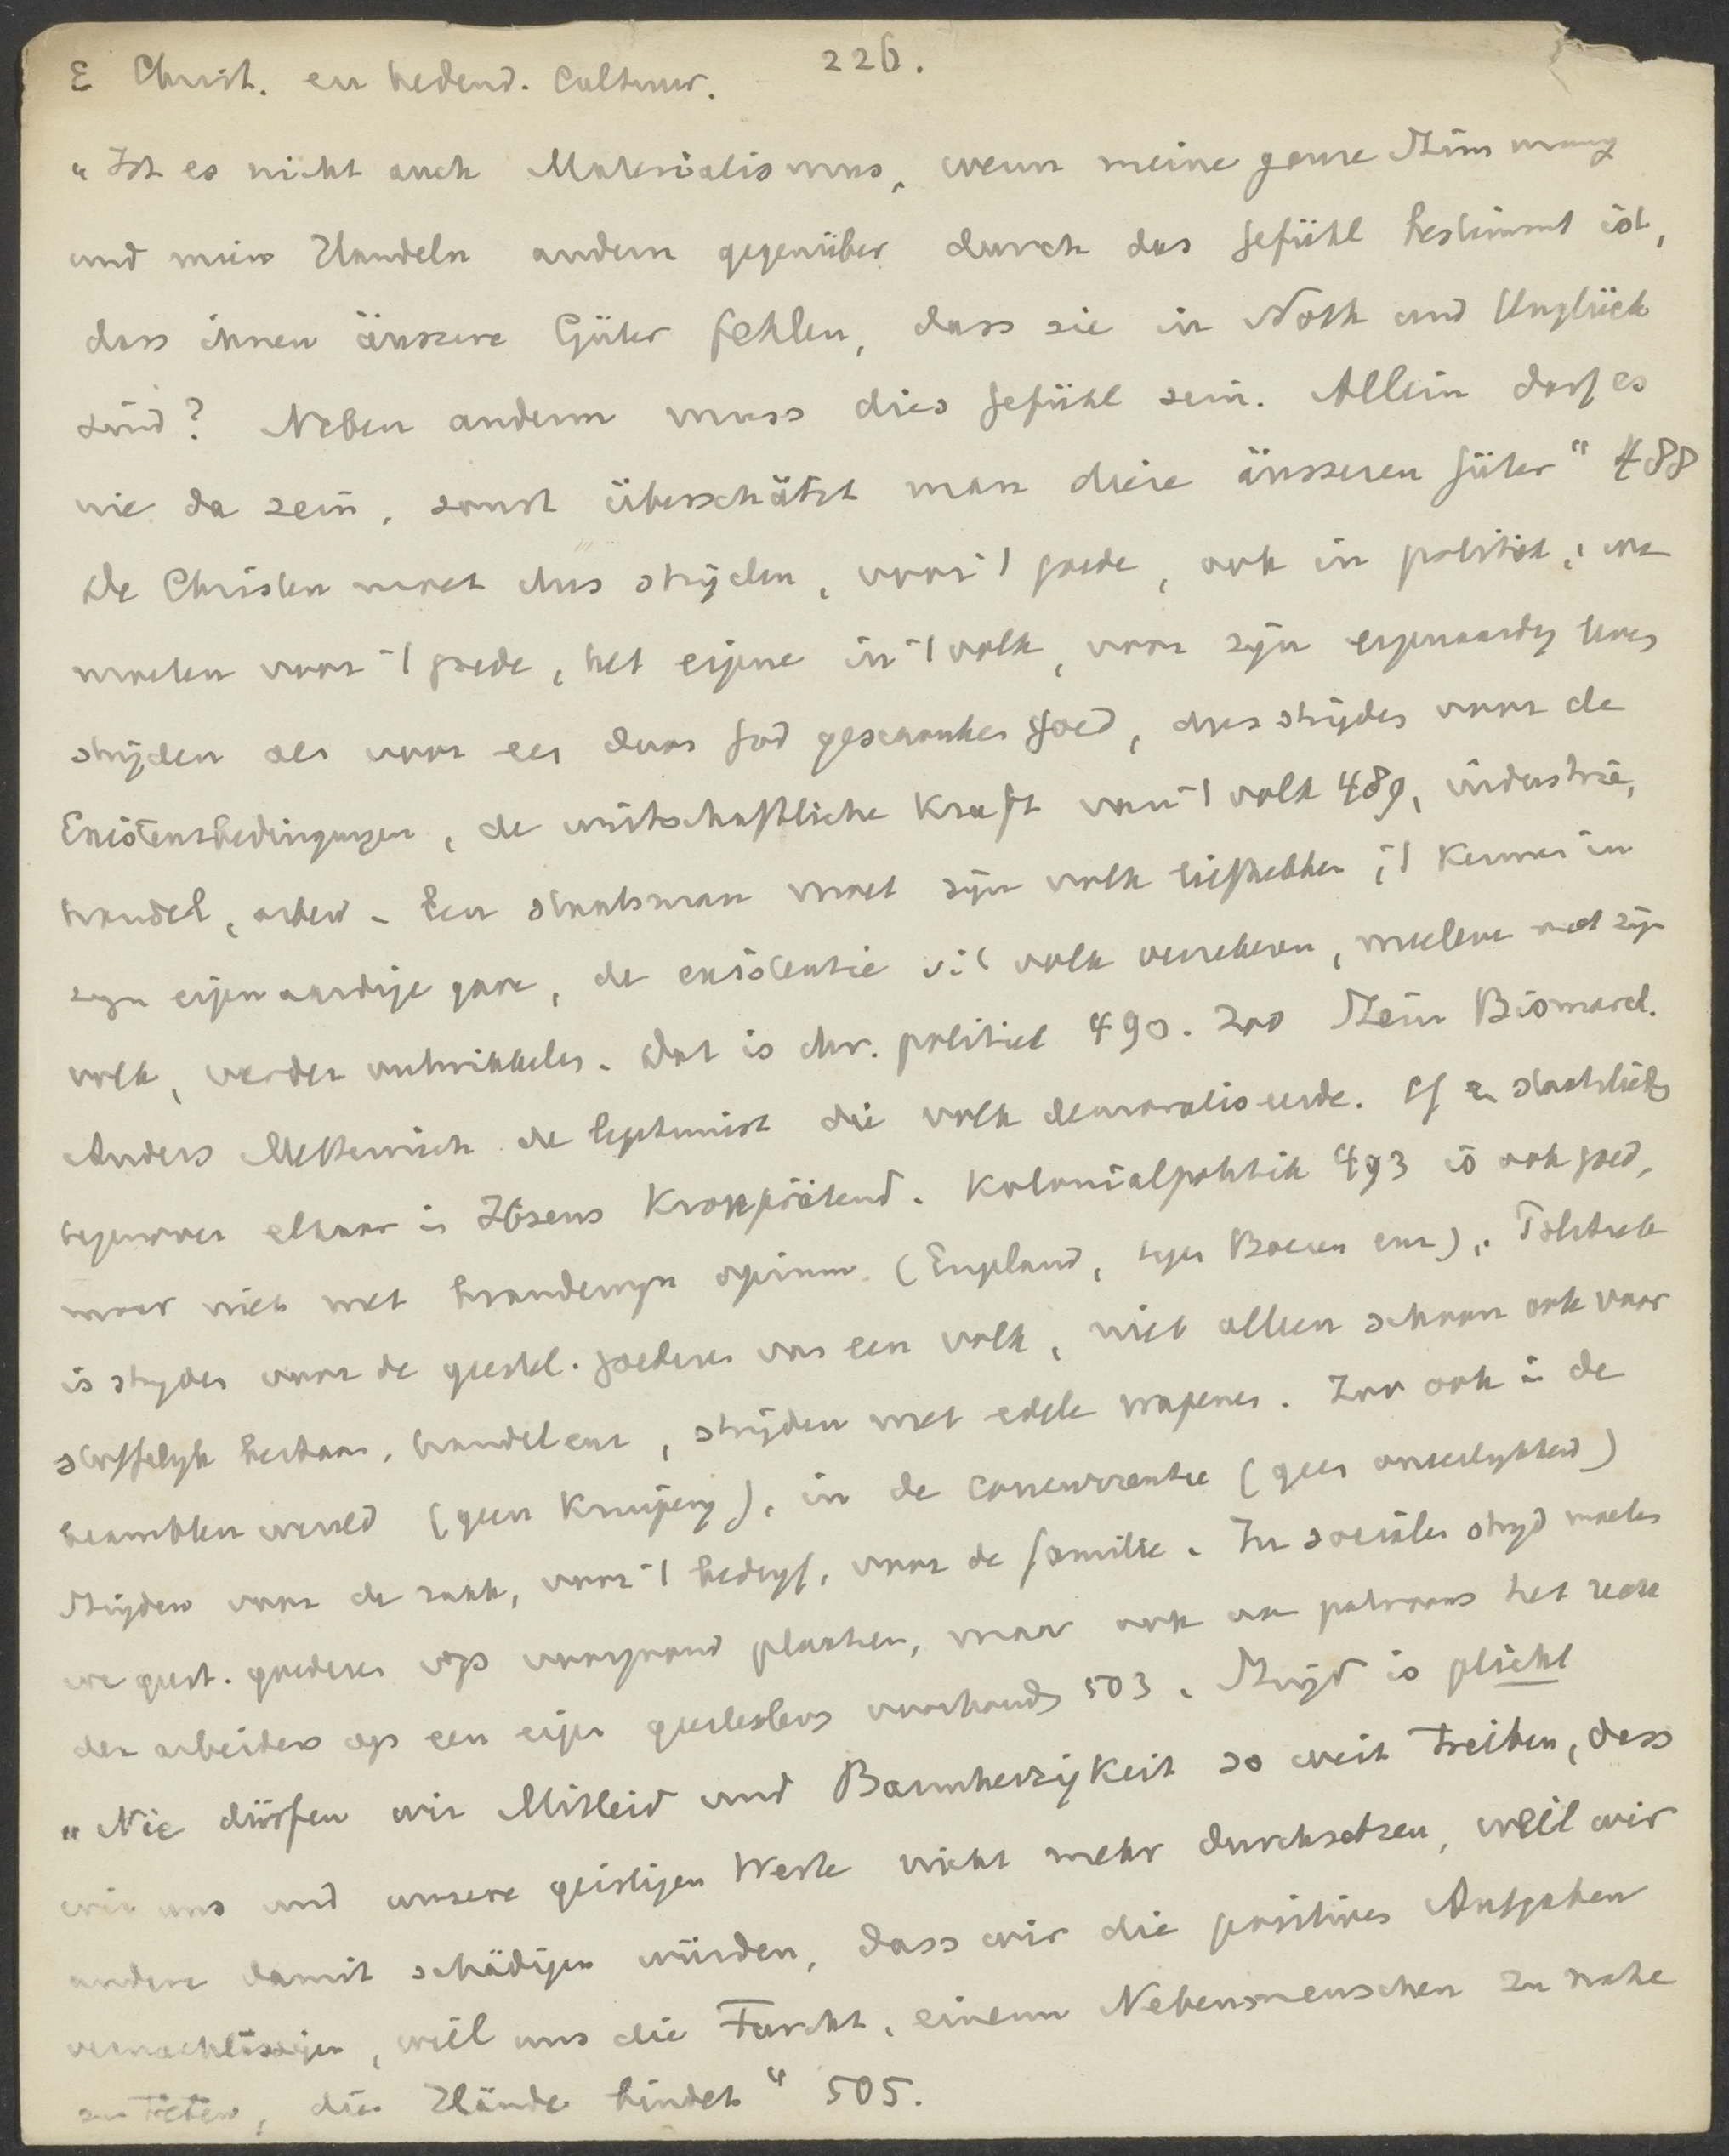 E Christ. en hedend. Cultuur. 226.
„Ist es nicht auch Materialismus, wenn meine ganze Stimmung
und mein Handeln andern gegenüber durch das Gefühl bestimmt ist,
dass ihnen äussere Güter fehlen, dass sie in Noth und Unglück
sind? Neben anderm muss dies Gefühl sein. Allein darf es
nie da sein, sonst überschätzt man diese äusseren Güter" 488
De Christen moet dus strijden, voor 't goede, ook in politiek, we
moeten voor 't goede, het eigene in 't volk, voor zijn eigenaardig
strijden als voor een door God geschonken goed, dus strijden voor de
Existenzbedingungen, de wirtschaftliche Kraft van 't volk 489, industrie,
handel, arbeid. Een staatsman moet zijn volk liefhebben, 't kennen in
zijn eigenaardige gave, de existentie v. 't volk verzekeren, meeleven met zijn
volk, verder ontwikkelen. Dat is chr. politiek 490. Zoo Stein Bismarck.
Anders Metternich de legitimist die volk demoraliseerde. Cf
tegenover elkaar in Ibsens Kronprätend. Kolonialpolitik 493 is ook goed,
maar niet met brandewijn opium (England, tegen Boeren enz).
is strijden voor de geestel. goederen van een volk, niet alleen schoon ook voor
stoffelijk bestaan, handel enz, strijden met edele wapenen. Zoo ook in de
beambten wereld (geen kruiperij), in de concurrentie (geen oneerlijkheid)
Strijden voor de zaak, voor 't bedrijf, voor de familie. In socialen strijd moeten
we geest. goederen op voorgrond plaatsen, maar ook aan patroons het recht
der arbeiders op een eigen geestesleven voorhouden 503. Strijd is plicht
„Nie dürfen wir Mitleid und Barmherzigkeit so weit treiben, dass
wir uns und unsere geistigen Werte nicht mehr durchsetzen, weil wir
andere damit schädigen würden, dass wir die positiven Aufgaben
vernachlässigen, weil uns die Furcht, einem Nebenmenschen zu nahe
zu treten, die Hände bindet" 505.